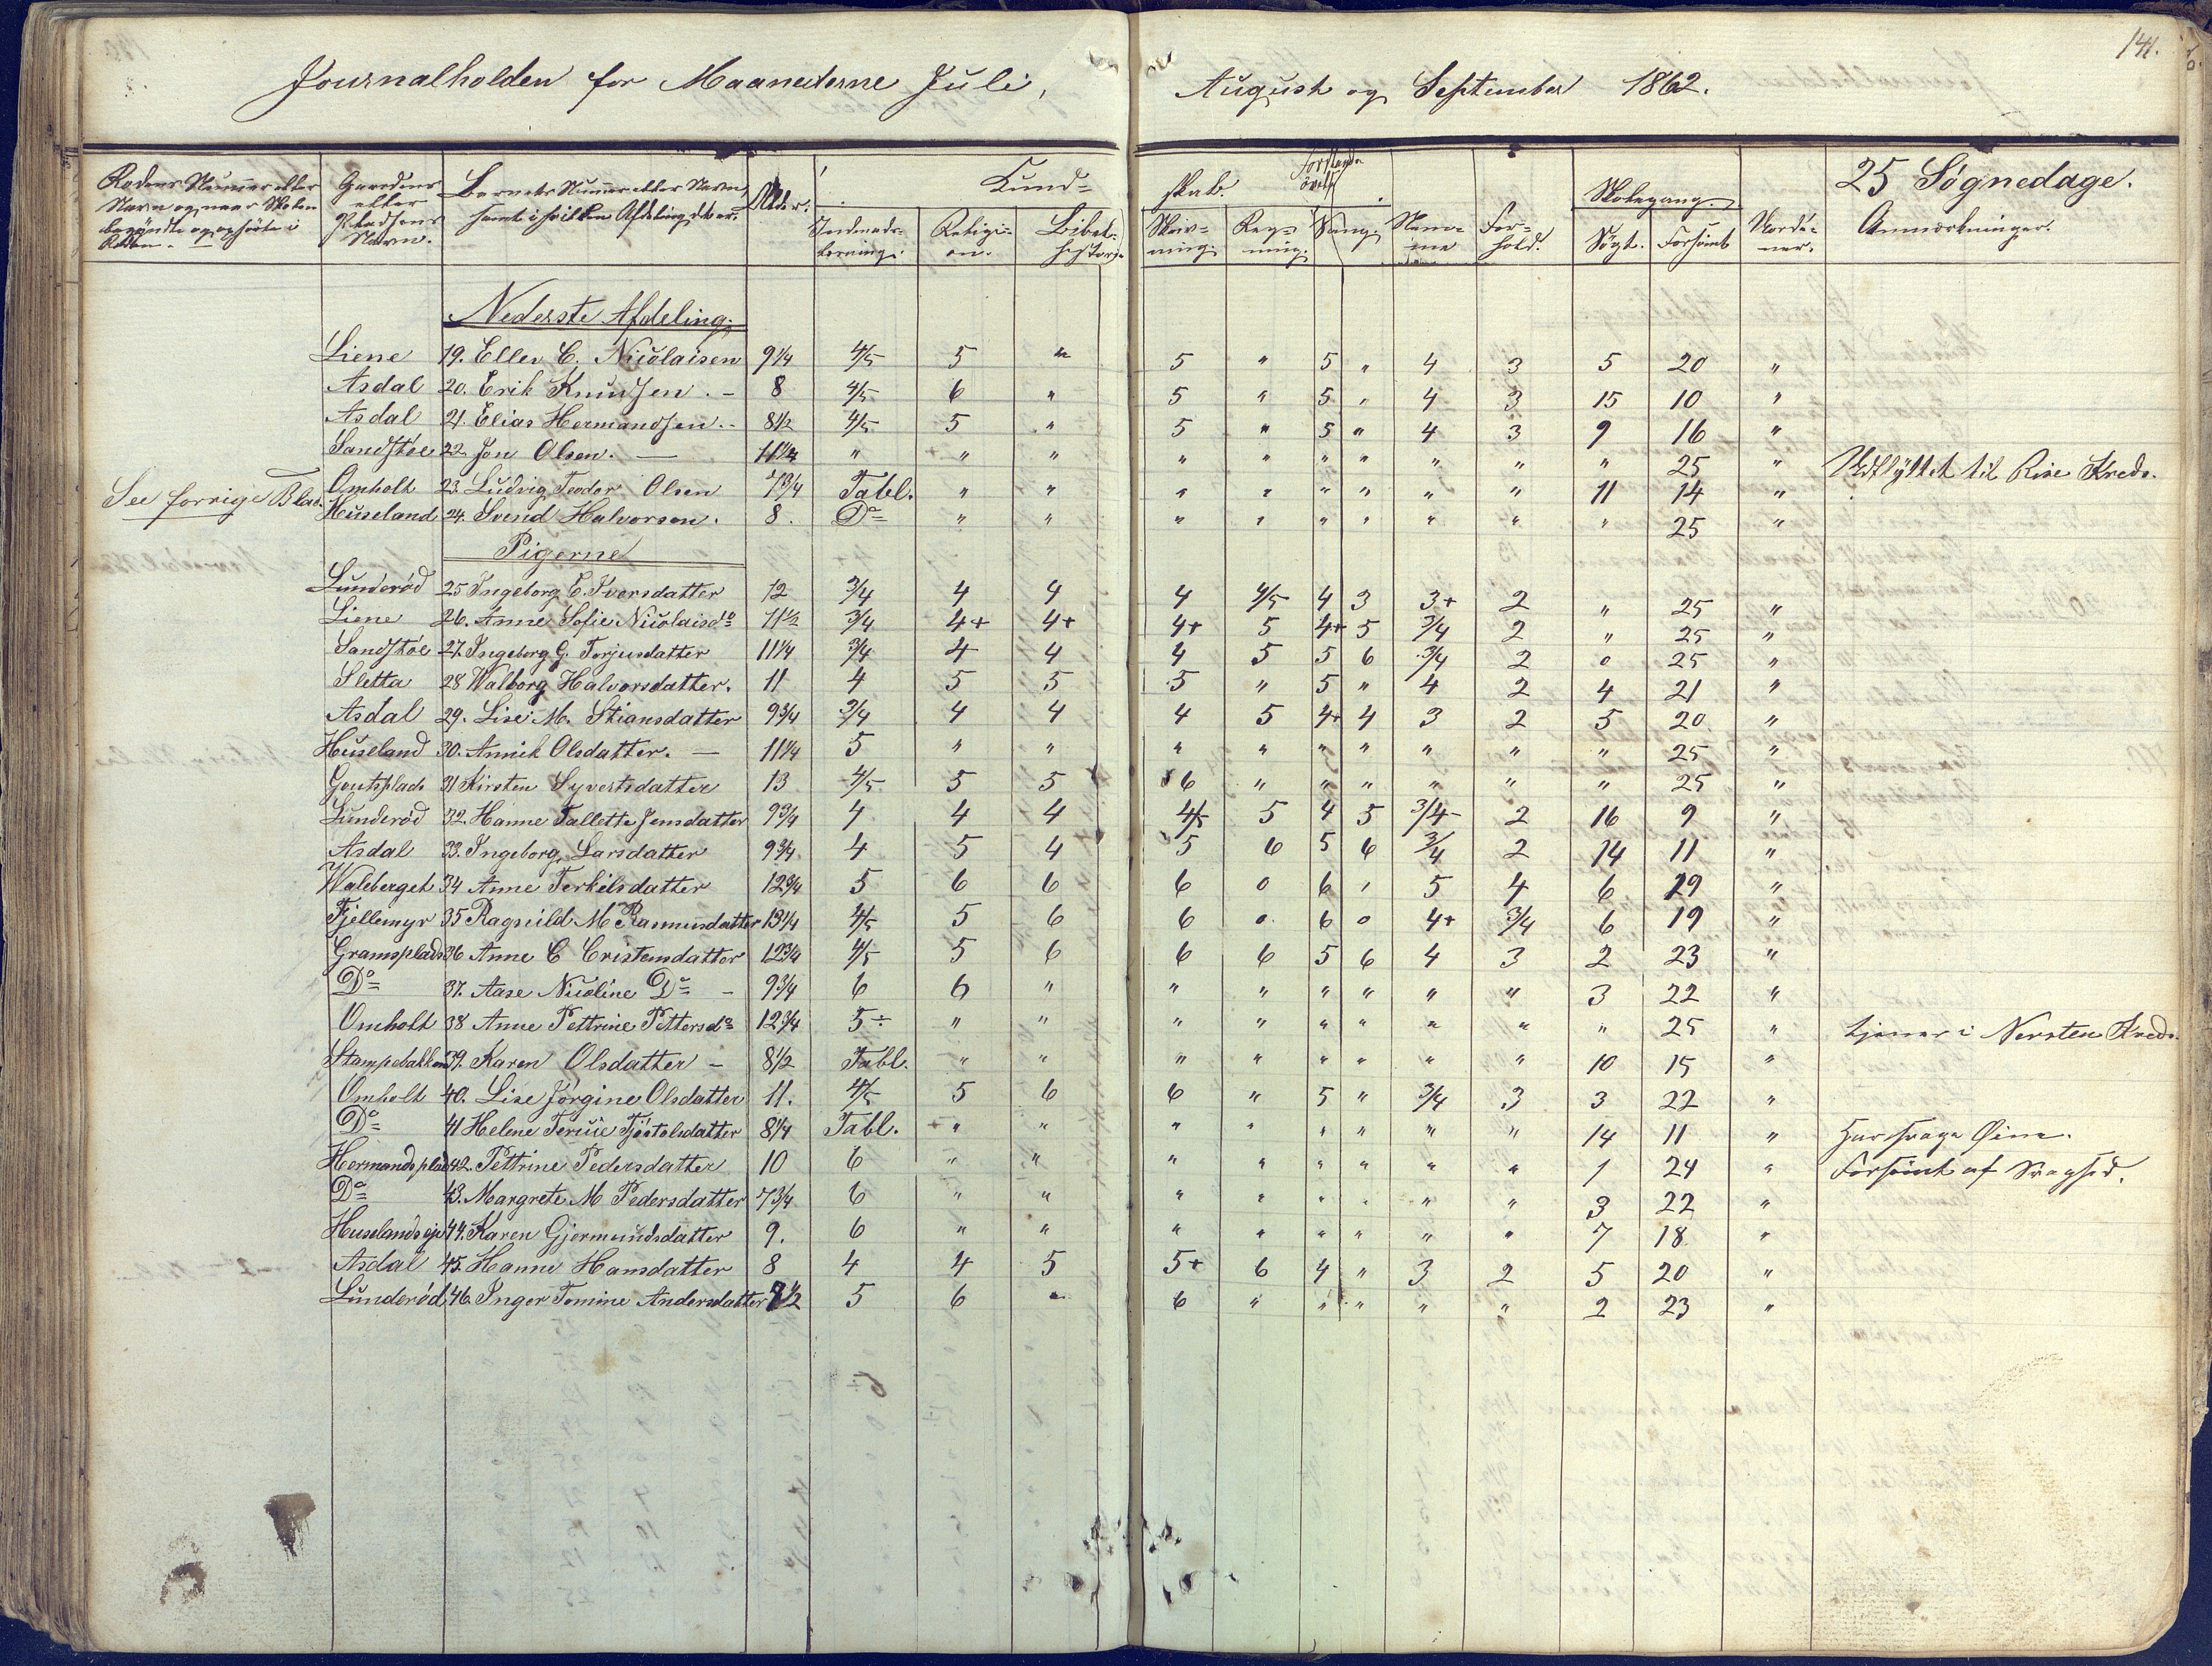 141.
Journalholden for Maanederne Juli, August og September 1862.
Rodens Nummer eller Navn og naar Skolen begyndte og ophörte i Roden. | Gaardens eller Pladsens Navn. | Barnets Nummer eller Navn, samt i hvilken Afdeling det er. | Alder. | Kundskab. | Forstands övelse | Skolegang. | 25 Søgnedage.
Indenads-læsning. | Religi-on. | Bibel-historje | Skriv-ning. | Reg-ning. | Sang. | Nemme | For-hold. | Søgt. | Forsömt | Anmærkninger.
Nederste Afdeling.
Liene 19. Ellev C. Nicolaisen 9 1/4 4/5 5 " 5 " 5 " 4 3 5 20 "
Asdal 20. Erik Knudsen. - 8 4/5 6 " 5 " 5 " 4 3 15 10 "
Asdal 21. Elias Hermandsen. - 8 1/2 4/5 5 " 5 " 5 " 4 3 9 16 "
Sandstöe 22. Jon Olsen. — 11 1/4 " " " " " " " " " " 25 " Udflyttet til Rise Kreds.
See forrige Blad. Omholt 23. Ludvig Teodor Olsen 7 3/4 Tabl. " " " " " " " " 11 14 "
Huseland 24. Svend Halvorson. 8. Do " " " " " " " " " 25 "
Pigerne
Lunderød 25 Ingeborg E. Iversdatter 12 3/4 4 4 4 4/5 4 3 3+ 2 " 25 "
Liene 26. Anne Sofie Nicolaisdr 11 1/2 3/4 4+ 4+ 4+ 5 4+ 5 3/4 2 " 25 "
Sandstöe 27. Ingeborg G. Torjusdatter 11 1/4 3/4 4 4 4 5 5 6 3/4 2 0 25 "
Sletta 28 Walborg Halvorsdatter. 11 4 5 5 5 " 5 " 4 2 4 21 "
Asdal 29. Lise M. Stiansdatter 9 3/4 3/4 4 4 4 5 4+ 4 3 2 5 20 "
Huseland 30. Annik Olsdatter. — 11 1/4 5 " " " " " " " " " 25 "
Gautsplads 31 Kirsten Syvertsdatter 13 4/5 5 5 6 " " " " " " 25 "
Lunderød 32. Hanne Tallette Jensdatter 9 3/4 4 4 4 4/5 5 4 5 3/4- 2 16 9 "
Asdal 33. Ingeborg Larsdatter 9 3/4 4 5 4 5 6 5 6 3/4 2 14 11 "
Waleberget 34 Anne Terkelsdatter 12 3/4 5 6 6 6 0 6 " 5 4 6 19 "
Fjellemyr 35 Ragnild M Rasmusdatter 13 1/4 4/5 5 6 6 0 6 0 4+ 3/4 6 19 "
Gramsplads 36 Anne C Cristensdatter 12 3/4 4/5 5 6 6 6 5 6 4 3 2 23 "
Do 37. Aase Nicoline Do - 9 3/4 6 6 " " " " " " " 3 22 "
Omholt 38 Anne Pettrine Pettersdr 12 3/4 5÷ " " " " " " " " " 25 " tjener i Nersten Kreds.
Stampebakken 39. Karen Olsdatter - 8 1/2 Tabl. " " " " " " " " 10 15 "
Omholt 40. Lise Jörgine Olsdatter 11. 4/5 5 6 6 " 5 " 3/4 3 3 22 "
Do 41 Helene Terese Tjöstolsdatter 8 1/4 Tabl. " " " " " " " " 14 11 " Har svage Øine.
Hermandsplads 42. Pettrine Pedersdatter 10 6 " " " " " " " " 1 24 " Forsömt af Svaghed.
Do 43. Margrete M Pedersdatter 7 3/4 6 " " " " " " " " 3 22 "
Huselandseje 44. Karen Gjermundsdatter 9. 6 " " " " " " " " 7 18 "
Asdal 45. Hanne Hansdatter 8 4 4 5 5+ 6 4 " 3 2 5 20 "
Lunderød 46. Inger Tomine Andersdatter 7 1/2 5 6 " 6 " " " " " 2 23 "